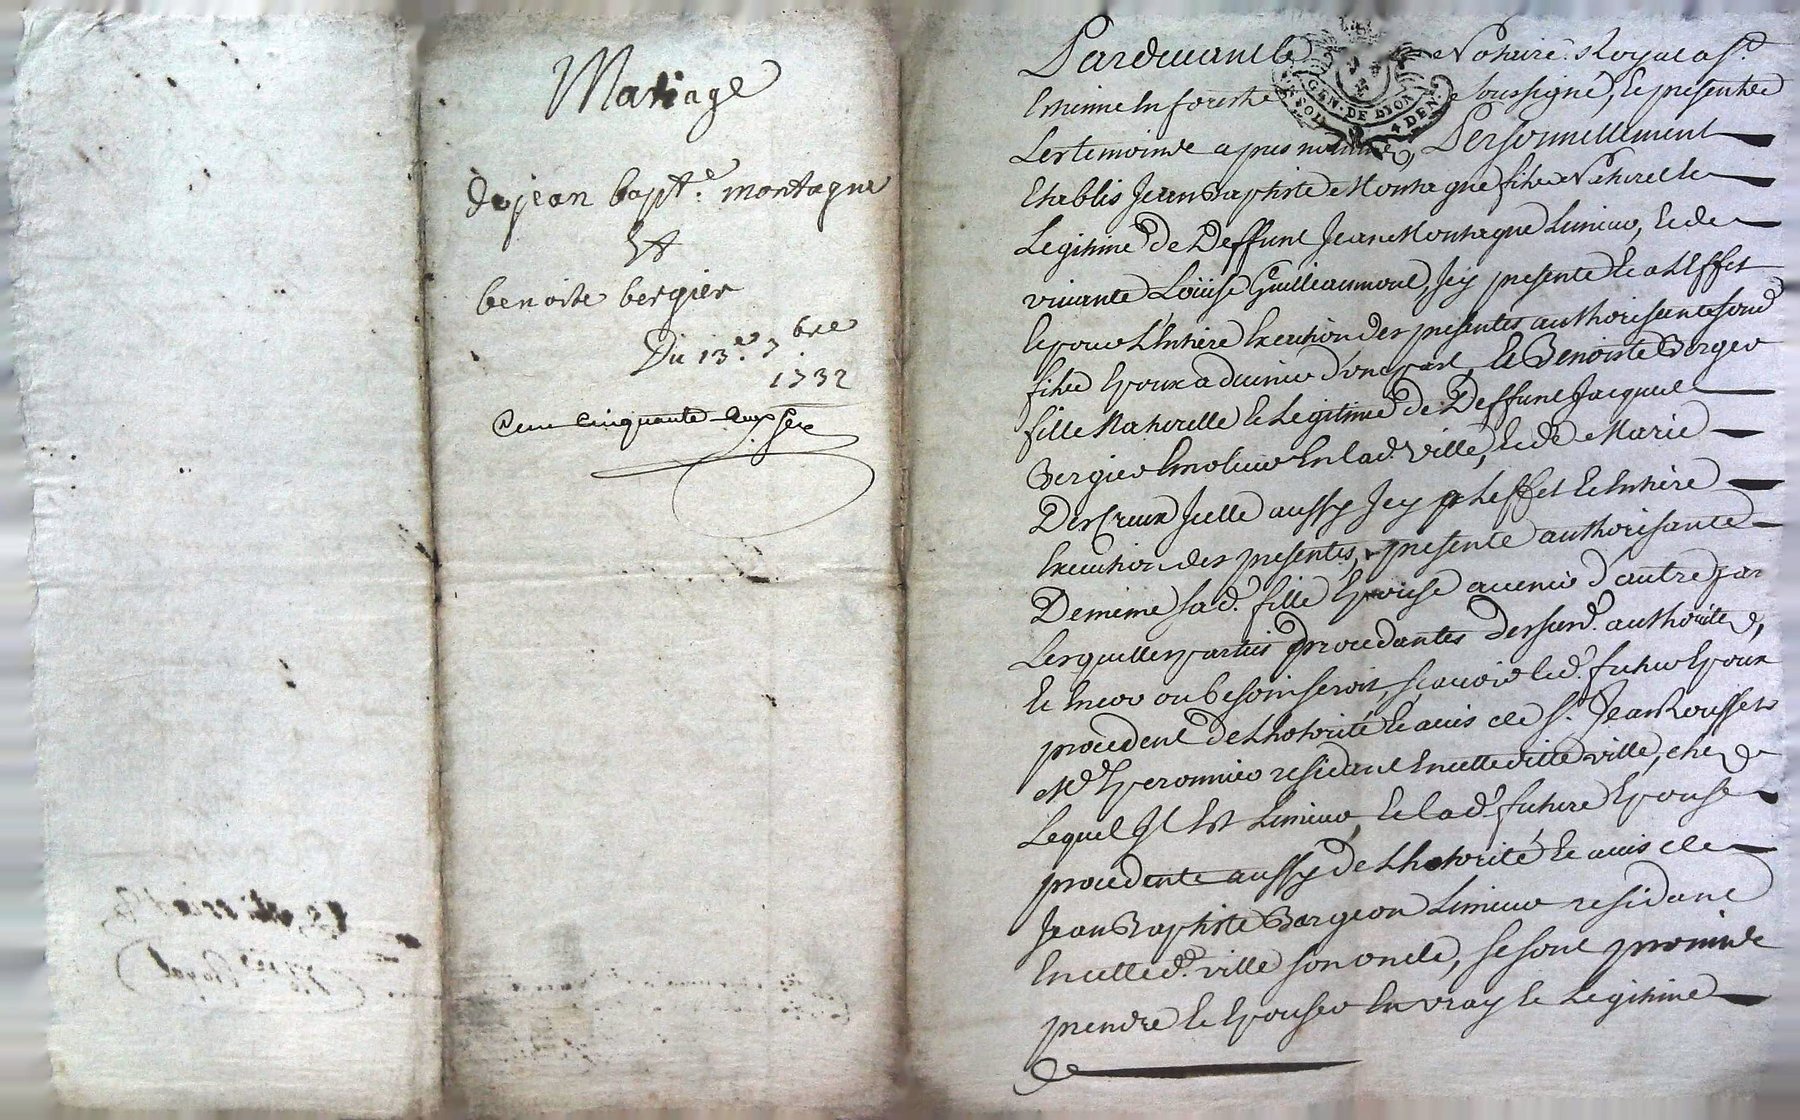 Mariage
de jean bapt.e montagne
Et
benoite bergier
Du 13.e 7bre
1732
Cent cinquante deux
Pardevant le Notaire Royal a St.
Estienne en forest soussigné, et presents
Les temoins apres nommés, Personnellement
Etablis Jean Baptiste Montagne fils Naturel et
Legitime de Deffunt Jean Montagne Limeur, et de
vivante Loüise Guilleaumont, Jcy presente et a L'Effet
et pour L'Entiere Execution des presentes authorisante sond
fils Epoux advenir d'une part, Et Benoiste Bergier
fille Naturelle et Legitime de Deffunt Jacques
Bergier Emoleur En lad. ville, et de Marie
Descreux Jcelle aussy Jcy p.r L'effet et Entiere
Execution des presentes, presente authorisante
De meme sad.e fille Epouse avenir d'autre par
Lesquelles parties procedantes des susd. authorités,
Et Encor ou besoin seroit, sçavoir led. futur Epoux
procedent de L'hotorité et avis de S.r Jean Rousset
M.d Eperonnier residant en cette ville ville, chez
Lequel Jl Est Limeur, et lad.e future Epouse
procedente aussy de L'hotorité et avis de
Jean Baptiste Bargeon Limeur residant
En cette d.e ville son oncle, se sont promis de
prendre et Epouser En vray et Legitime
GEN. DE LYON
4 DEN.